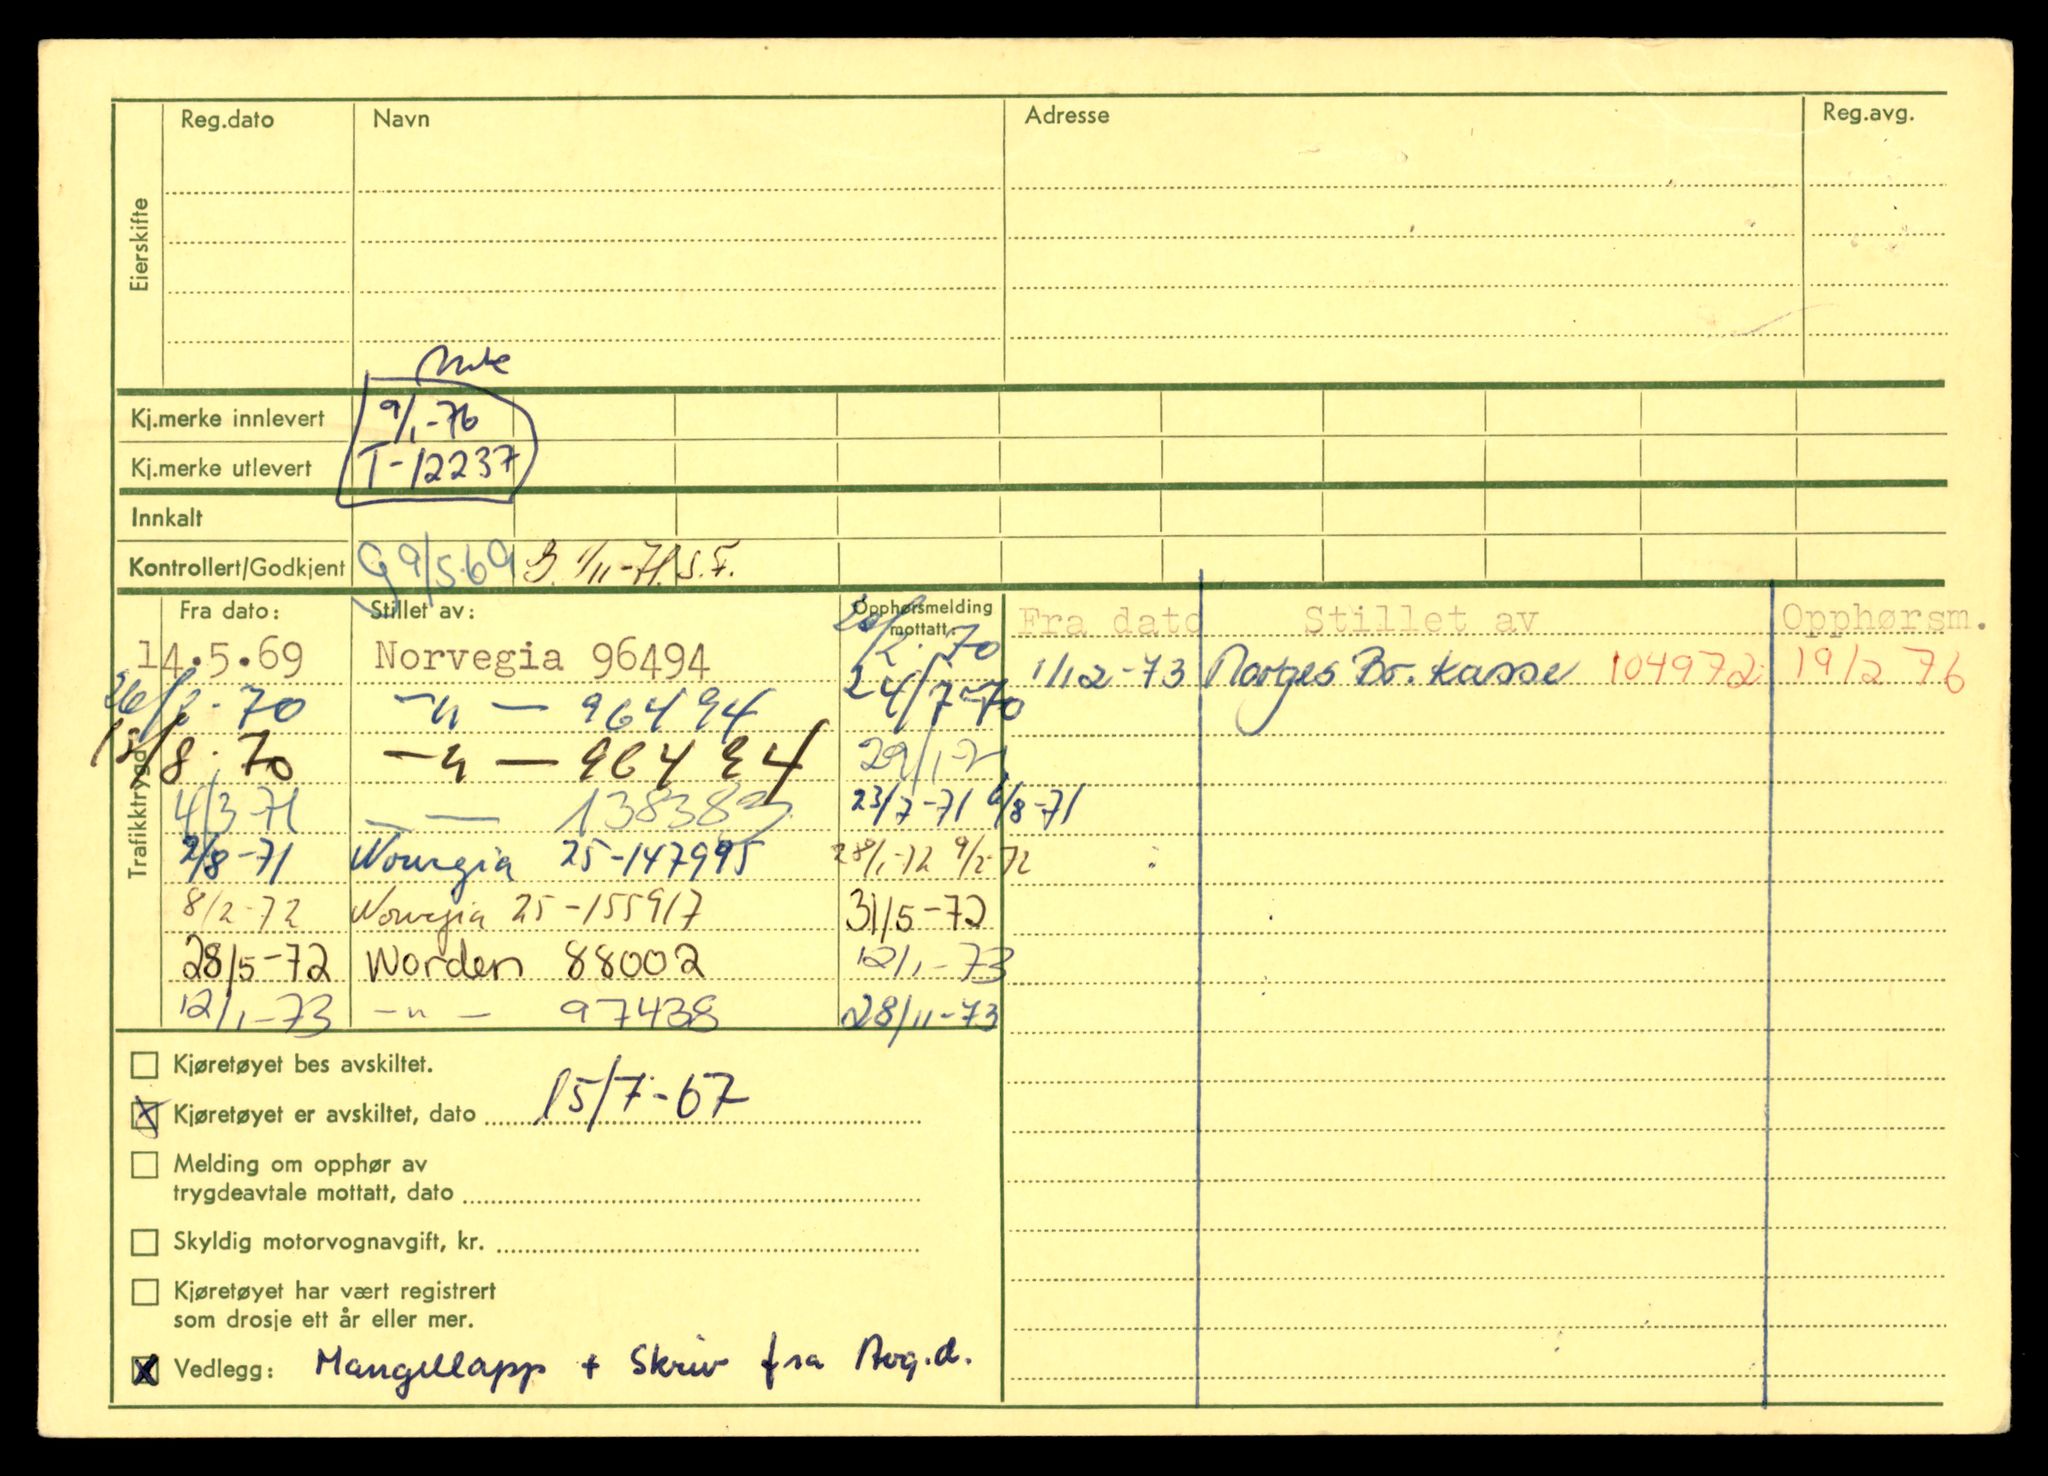 Reg.dato Navn Adresse Reg.avg.
Eierskifte
Kj.merke innlevert 9/1-76
Kj.merke utlevert T-12237
Innkalt
Kontrollert/Godkjent G 9/5-69 G. 1/11-71. S.F.
Trafikktrygd
Fra dato: Stillet av: Opphørsmelding mottatt: Fra dato Stillet av Opphørsm.
14.5.69 Norvegia 96494 20/2-70 1/12-73 Norges Br. Kasse 104972 19/2 76
26/2-70 -"- 96494 24/7-70
15/8-70 -"- 96494 29/1-71
4/3-71 — — 138383 23/7-71 6/8-71
2/8-71 Norvegia 25-147995 28/1-72 9/2-72
8/2-72 Norvegia 25-155917 31/5-72
28/5-72 Norden 88002 12/1-73
12/1-73 -"- 97438 28/11-73
Kjøretøyet bes avskiltet.
Kjøretøyet er avskiltet, dato 15/7-67
Melding om opphør av
trygdeavtale mottatt, dato
Skyldig motorvognavgift, kr.
Kjøretøyet har vært registrert
som drosje ett år eller mer.
Vedlegg: Mangellapp + Skriv fra Avg.d.